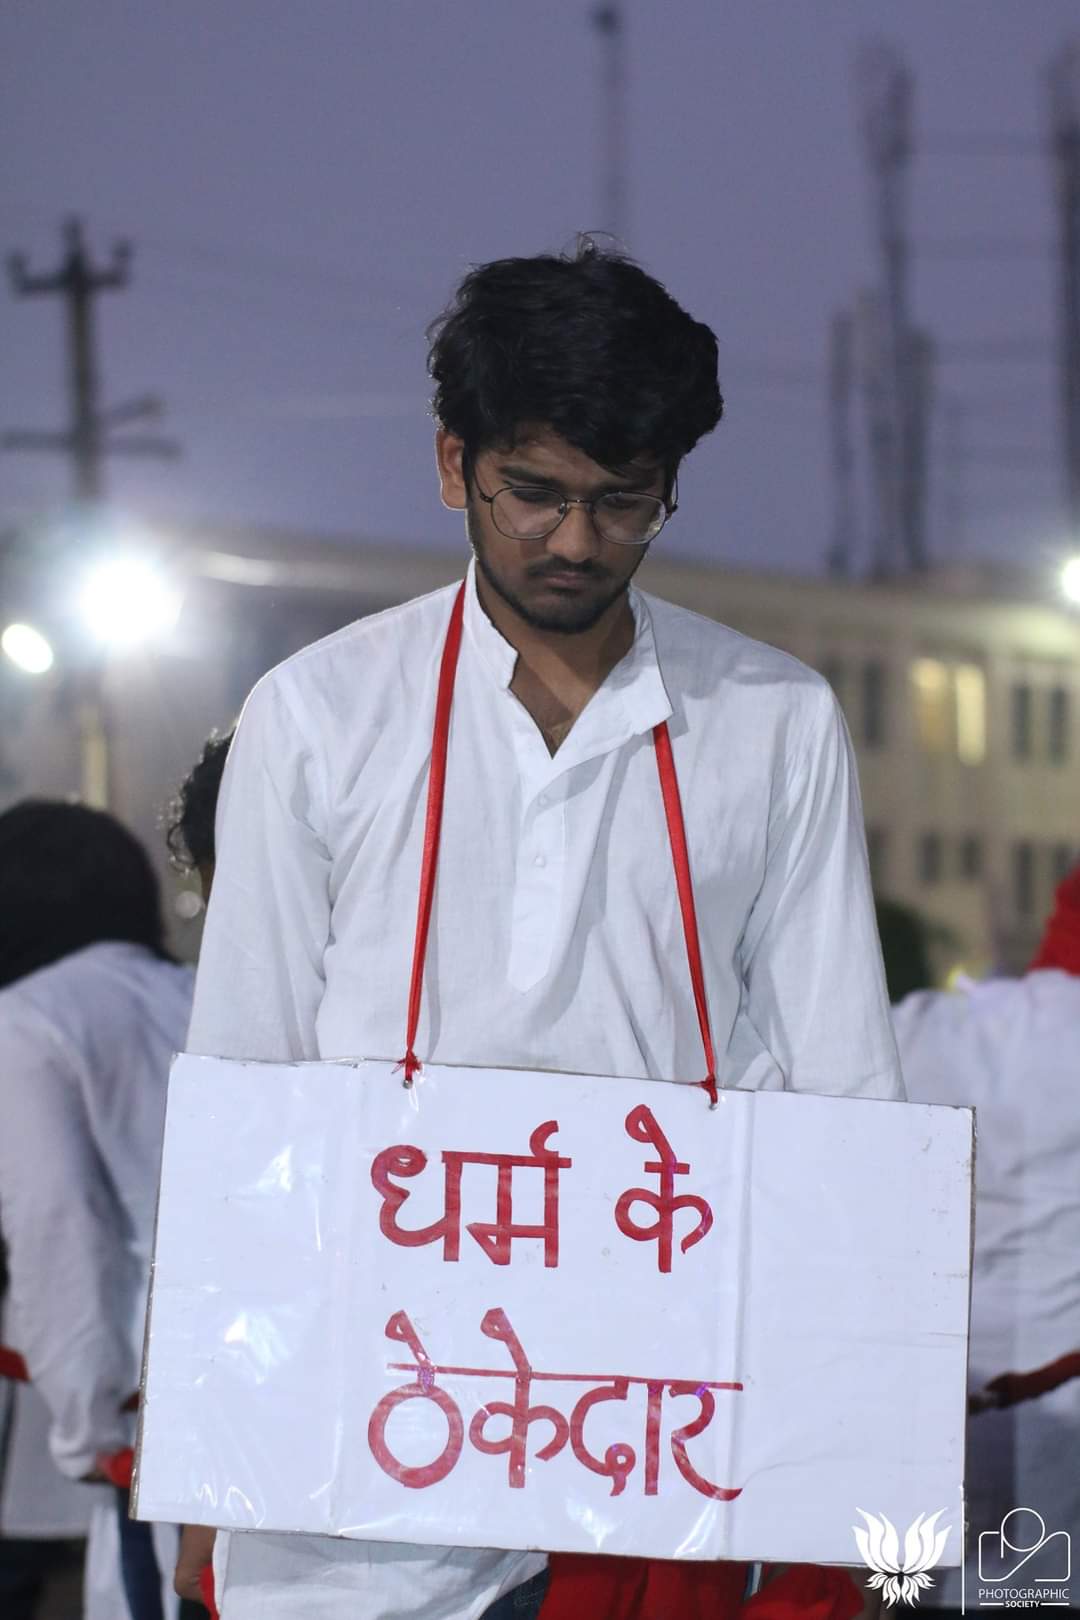 धर्म के
ठेकेदार
PHOTOGRAPHIC
SOCIETY